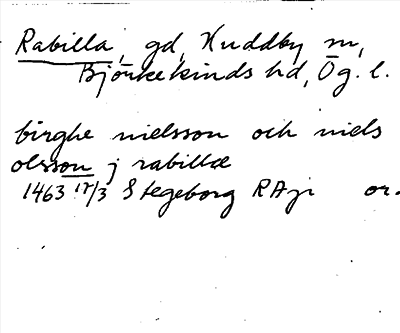 Rabilla, gd, Huddby sn,
Björkekinds hd, Ög. l.
birghe nielsson och niels
olsson j rabillæ
1463 17/3 Stegeborg RApr or.